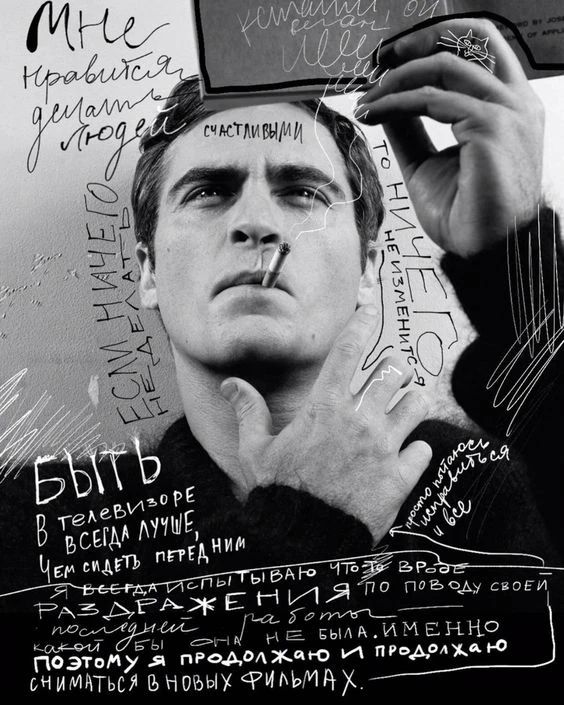 Мне
нравится
делать
людей
СЧАСТЛИВЫМИ
RD BY JOSE
OF APPL
ЕСЛИ НИЧЕГО
НЕ ДЕЛАТЬ
ТО НИЧЕГО
НЕ ИЗМЕНИТСЯ
БЫТЬ
В ТЕЛЕВИЗОРЕ
ВСЕГДА ЛУЧШЕ,
ЧЕМ СИДЕТЬ ПЕРЕД НИМ
просто пытаюсь
исправиться
и все
Я ВСЕГДА ИСПЫТЫВАЮ ЧТО-ТО ВРОДЕ
РАЗДРАЖЕНИЯ ПО ПОВОДУ СВОЕЙ
последней работы
КАКОЙ БЫ ОНА НЕ БЫЛА. ИМЕННО
ПОЭТОМУ Я ПРОДОЛЖАЮ И ПРОДОЛЖАЮ
СНИМАТЬСЯ В НОВЫХ ФИЛЬМАХ.